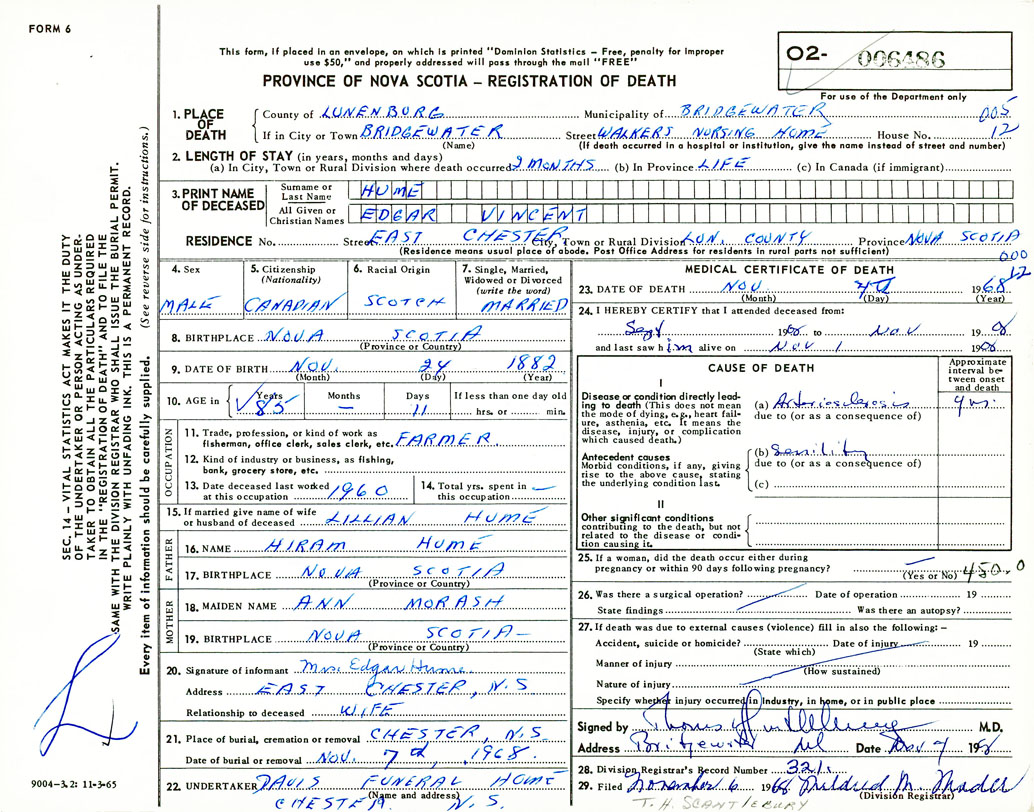 FORM 6
This form, if placed in an envelope, on which is printed "Dominion Statistics – Free, penalty for improper
use $50," and properly addressed will pass through the mail "FREE"
PROVINCE OF NOVA SCOTIA – REGISTRATION OF DEATH
02- 006486
For use of the Department only
SEC. 14 – VITAL STATISTICS ACT MAKES IT THE DUTY
OF THE UNDERTAKER OR PERSON ACTING AS UNDER-
TAKER TO OBTAIN ALL THE PARTICULARS REQUIRED
IN THE "REGISTRATION OF DEATH" AND TO FILE THE
SAME WITH THE DIVISION REGISTRAR WHO SHALL ISSUE THE BURIAL PERMIT.
WRITE PLAINLY WITH UNFADING INK. THIS IS A PERMANENT RECORD.
Every item of information should be carefully supplied. (See reverse side for instructions.)
1. PLACE OF DEATH
County of LUNENBURG Municipality of BRIDGEWATER 005
If in City or Town BRIDGEWATER Street WALKERS NURSING HOME House No. 12
(Name) (If death occurred in a hospital or institution, give the name instead of street and number)
2. LENGTH OF STAY (in years, months and days)
(a) In City, Town or Rural Division where death occurred 2 MONTHS (b) In Province LIFE (c) In Canada (if immigrant)
3. PRINT NAME OF DECEASED
Surname or Last Name HUME
All Given or Christian Names EDGAR VINCENT
RESIDENCE No. Street EAST CHESTER City, Town or Rural Division LUN. COUNTY Province NOVA SCOTIA
(Residence means usual place of abode. Post Office Address for residents in rural parts not sufficient)
000
12
4. Sex
MALE
5. Citizenship
(Nationality)
CANADIAN
6. Racial Origin
SCOTCH
7. Single, Married,
Widowed or Divorced
(write the word)
MARRIED
8. BIRTHPLACE NOVA SCOTIA
(Province or Country)
9. DATE OF BIRTH NOV. 24 1882
(Month) (Day) (Year)
10. AGE in Years 85 Months — Days 11 If less than one day old hrs. or min.
OCCUPATION
11. Trade, profession, or kind of work as
fisherman, office clerk, sales clerk, etc. FARMER
12. Kind of industry or business, as fishing,
bank, grocery store, etc.
13. Date deceased last worked
at this occupation 1960
14. Total yrs. spent in
this occupation —
15. If married give name of wife
or husband of deceased LILLIAN HUME
FATHER
16. NAME HIRAM HUME
17. BIRTHPLACE NOVA SCOTIA
(Province or Country)
MOTHER
18. MAIDEN NAME ANN MORASH
19. BIRTHPLACE NOVA SCOTIA –
(Province or Country)
20. Signature of informant Mrs. Edgar Hume
Address EAST CHESTER, N.S
Relationship to deceased WIFE
21. Place of burial, cremation or removal CHESTER, N.S.
Date of burial or removal NOV. 7th, 1968
22. UNDERTAKER DAVIS FUNERAL HOME
(Name and address)
CHESTER, N.S.
9004–3.2: 11-3-65
MEDICAL CERTIFICATE OF DEATH
23. DATE OF DEATH NOV 4th 1968
(Month) (Day) (Year)
24. I HEREBY CERTIFY that I attended deceased from:
Sept 1968 to Nov 1968
and last saw him alive on Nov 1 1968
CAUSE OF DEATH
Approximate
interval be-
tween onset
and death
I
Disease or condition directly lead-
ing to death (This does not mean
the mode of dying, e.g., heart fail-
ure, asthenia, etc. It means the
disease, injury, or complication
which caused death.)
(a) Arteriosclerosis yrs.
due to (or as a consequence of)
Antecedent causes
Morbid conditions, if any, giving
rise to the above cause, stating
the underlying condition last.
(b) Senility
due to (or as a consequence of)
(c)
II
Other significant conditions
contributing to the death, but not
related to the disease or condi-
tion causing it.
25. If a woman, did the death occur either during
pregnancy or within 90 days following pregnancy? —
(Yes or No) 450.0
26. Was there a surgical operation? Date of operation 19
State findings Was there an autopsy?
27. If death was due to external causes (violence) fill in also the following: –
Accident, suicide or homicide? Date of injury 19
(State which)
Manner of injury
(How sustained)
Nature of injury
Specify whether injury occurred in Industry, in home, or in public place
Signed by M.D.
Address Bridgewater Date Nov 7 1968
28. Division Registrar's Record Number 321
29. Filed November 6 1968 Mildred M. Mader
(Division Registrar)
T. H. SCANTLEBURY